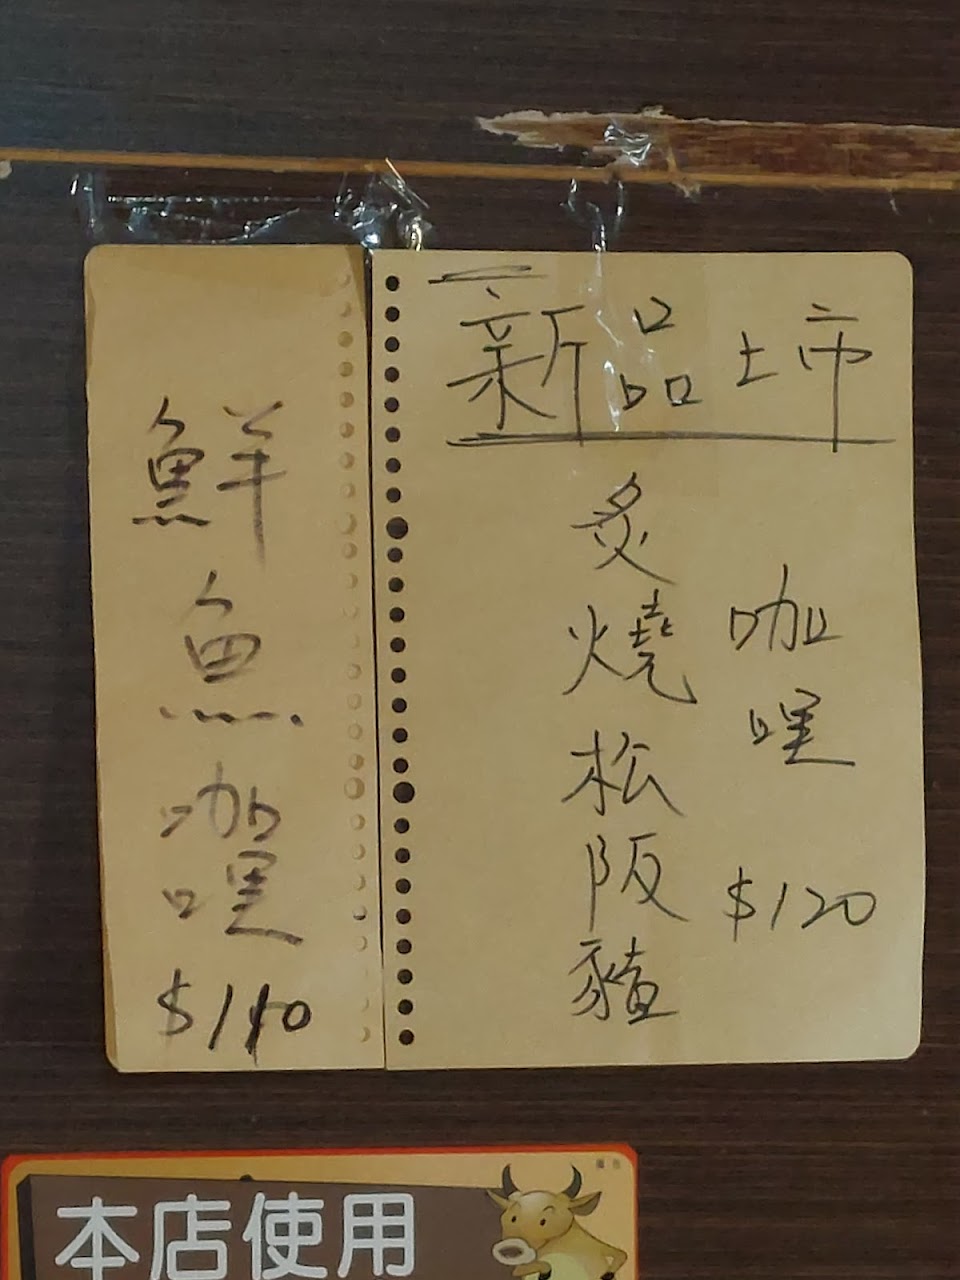 新品上市
炙燒松阪豬
咖哩
$120
鮮魚咖哩
$140
本店使用